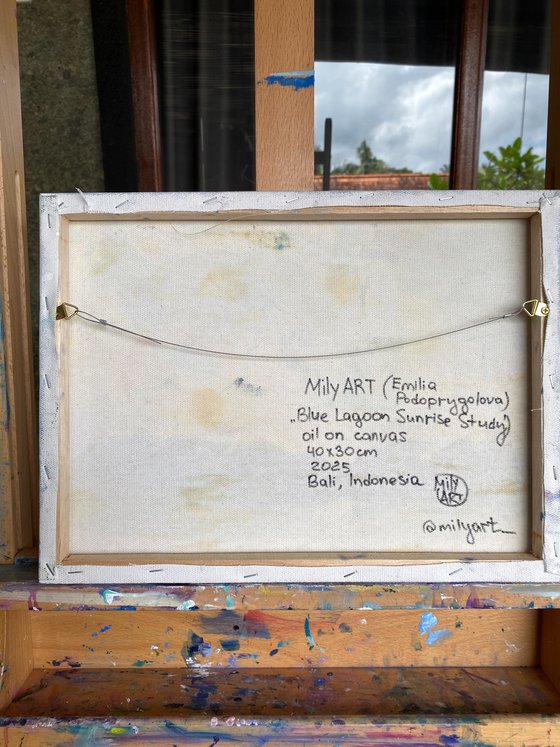 Mily ART (Emilia
Podoprygolova)
„Blue Lagoon Sunrise Study”
oil on canvas
40x30cm
2025
Bali, Indonesia
MiLY
ART
@milyart_